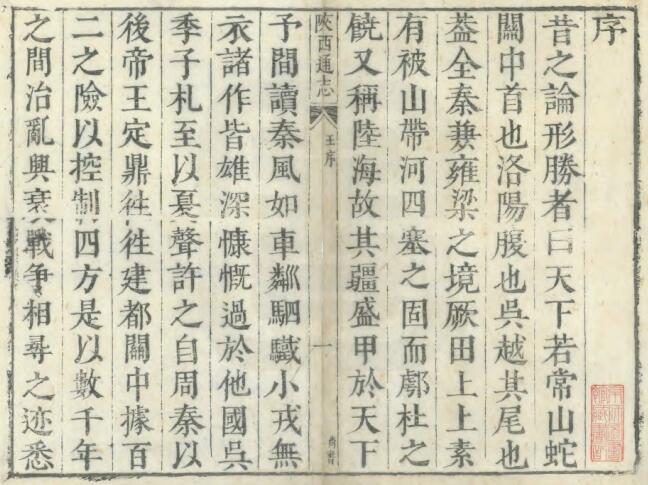 序
昔之論形勝者曰天下若常山蛇
關中首也洛陽腹也吳越其尾也
葢全秦兼雍梁之境厥田上上素
有被山帶河四塞之固而鄠杜之
饒又稱陸海故其疆盛甲於天下
陝西通志
王序
一
予間讀秦風如車鄰駟驖小戎無
衣諸作皆雄深慷慨過於他國吳
季子札至以夏聲許之自周秦以
後帝王定鼎徃徃建都關中據百
二之險以控制四方是以數千年
之間治亂興衰戰争相尋之迹悉